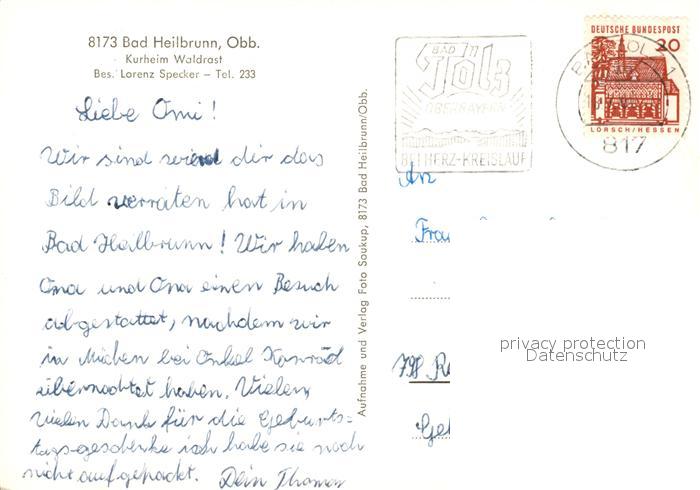 8173 Bad Heilbrunn, Obb.
Kurheim Waldrast
Bes. Lorenz Specker – Tel. 233
Liebe Omi!
Wir sind wie dir das
Bild verraten hat in
Bad Heilbrunn! Wir haben
Oma und Opa einen Besuch
abgestattet, nachdem wir
in Müchen bei Onkel Konrad
übernachtet haben. Vielen,
vielen Dank für die Geburts-
tagsgeschenke ich habe sie noch
nicht aufgepackt. Dein Thomas
Aufnahme und Verlag Foto Soukup, 8173 Bad Heilbrunn/Obb.
BAD
Tölz
OBERBAYERN
BEI HERZ-KREISLAUF
DEUTSCHE BUNDESPOST
20
LORSCH/HESSEN
BAD TÖLZ 1
817
An
Frau
privacy protection
Datenschutz
798 Ra